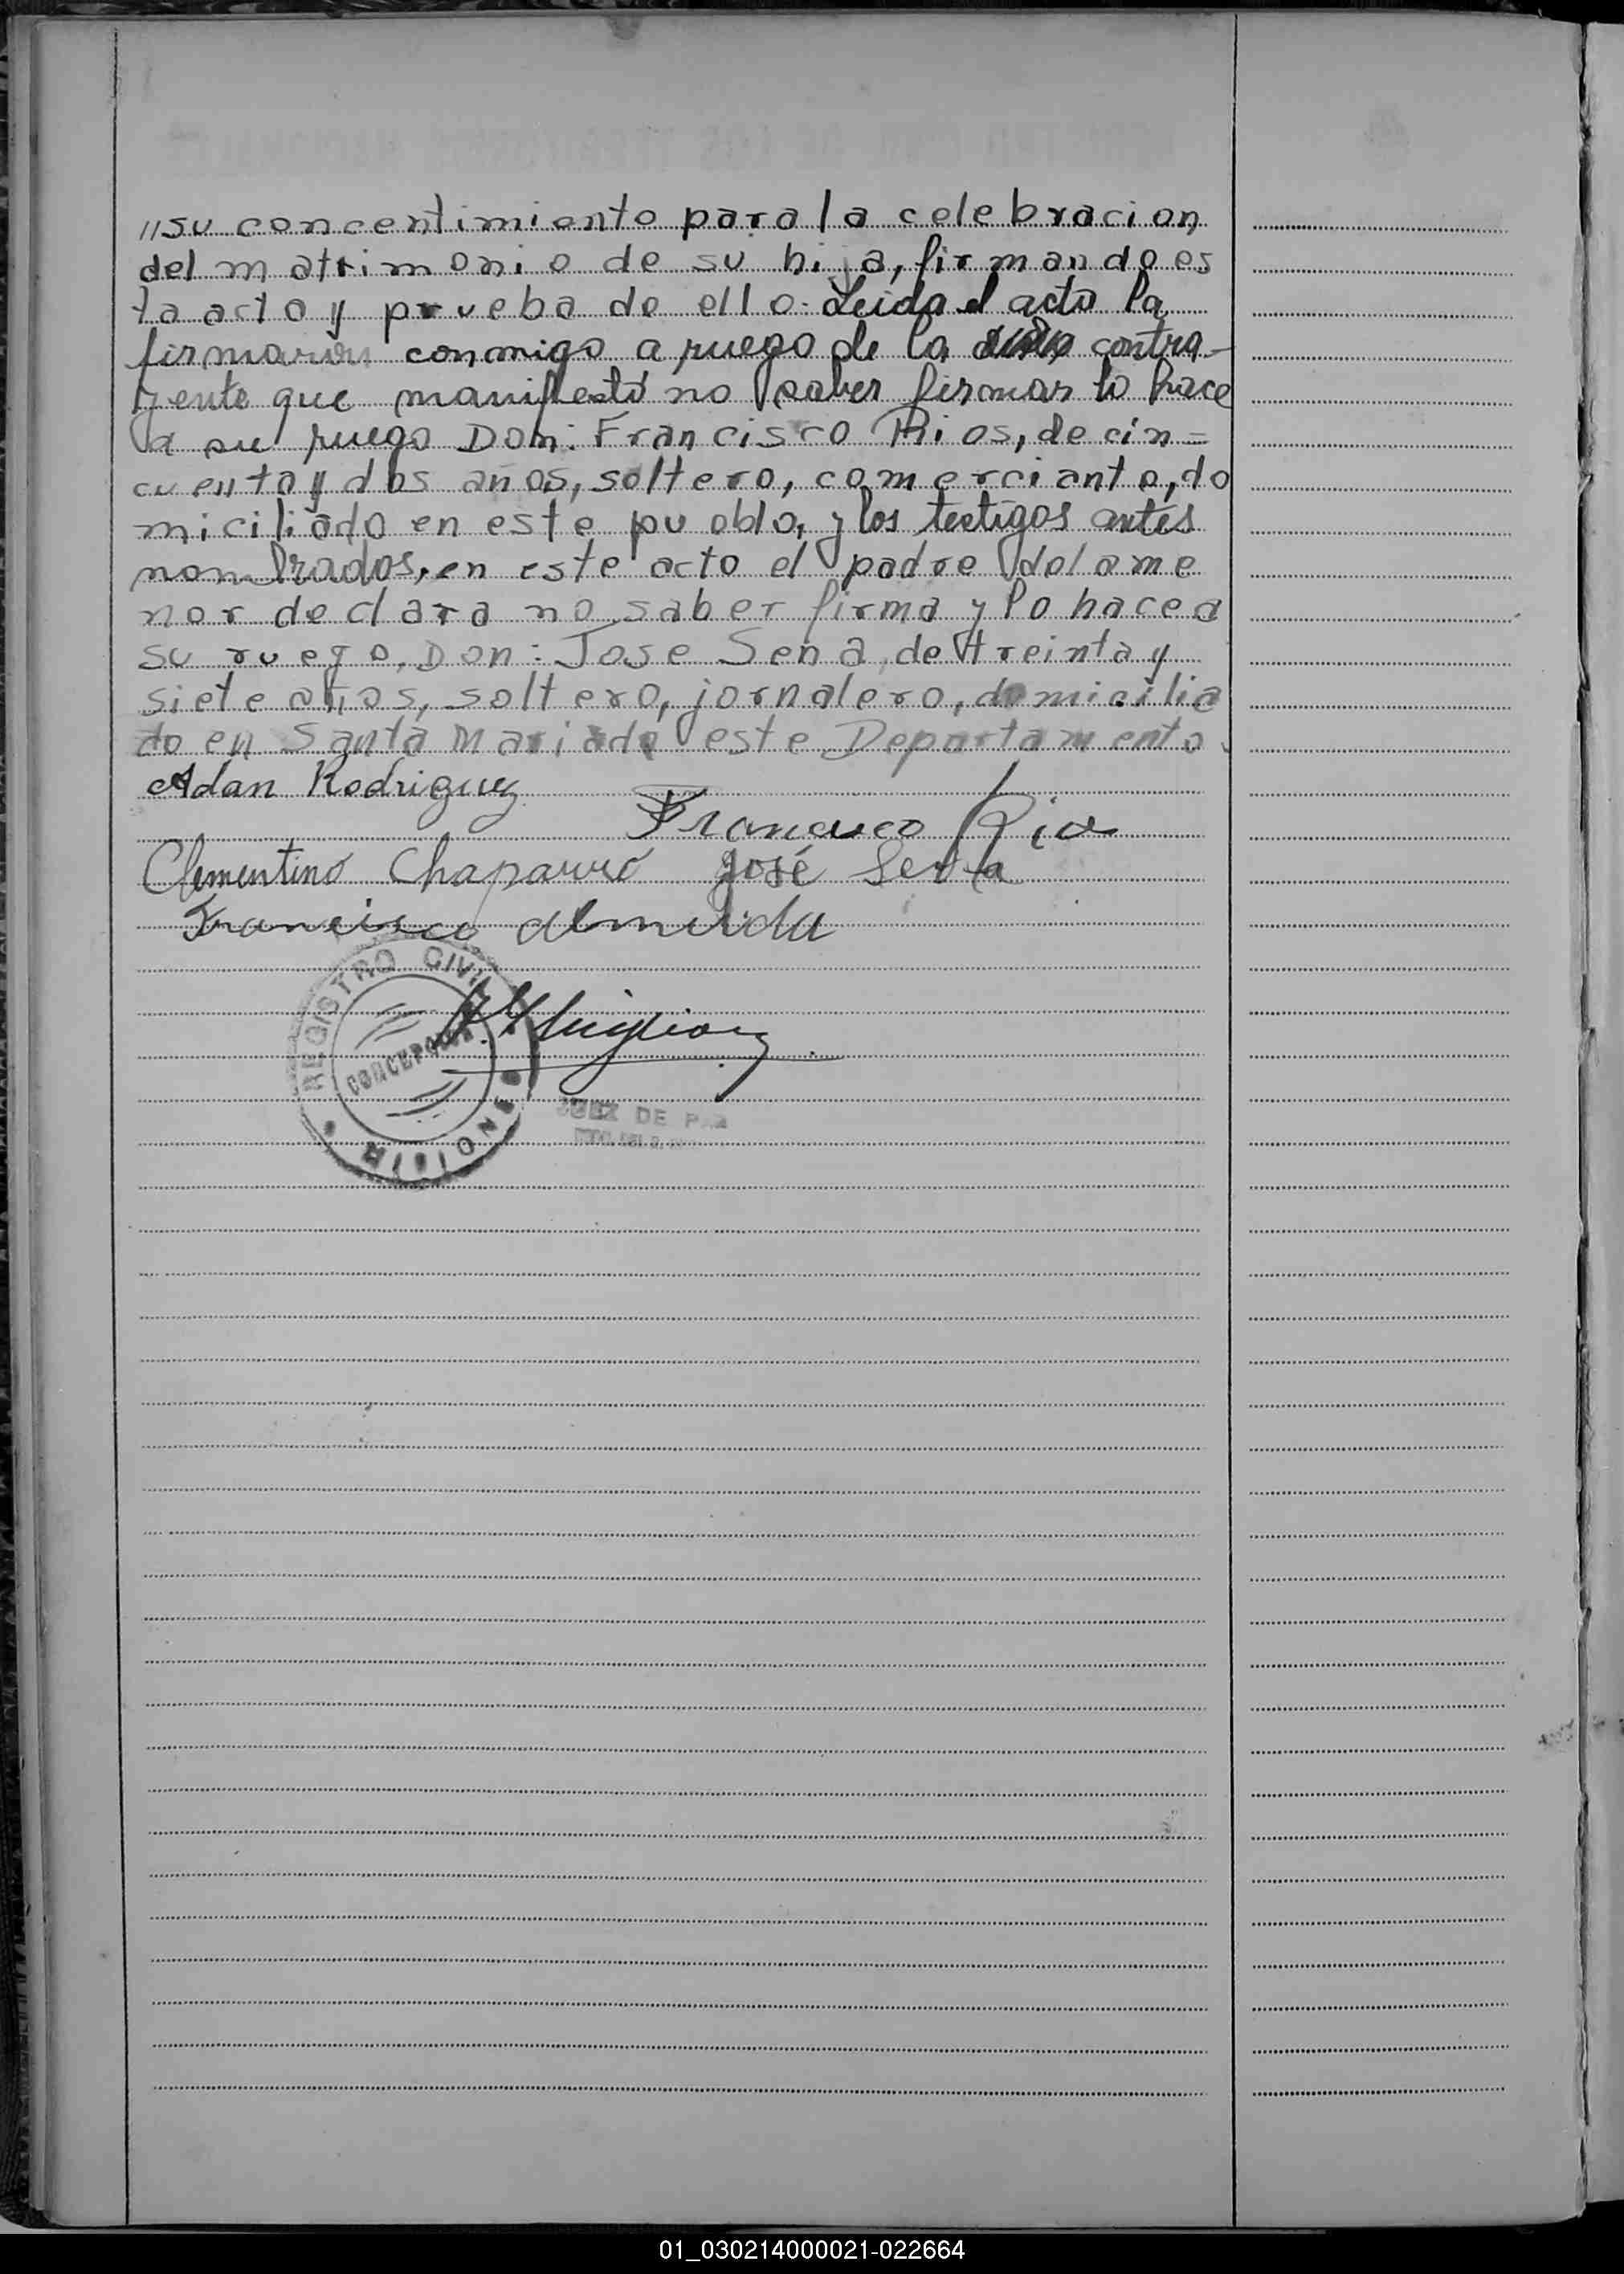 "su concentimiento para la celebracion
del matrimonio de su hija, firmando es
ta acto y prueba de ello. Leida el acta la
firmarón conmigo a ruego de la contra-
yente que manifestó no saber firmar lo hace
a su ruego Don: Francisco Rios, de cin=
cuenta y dos años, soltero, comerciante, do
miciliado en este pueblo, y los testigos antes
nombrados, en este acto el padre de la me
nor declara no saber firma y lo hace a
su ruego, Don: Jose Sena, de treinta y
siete años, soltero, jornalero, domicilia
do en Santa Maria de este Departamento.
Adan Rodriguez
Francisco Rios
Clementino Chaparro José Sena
Francisco Almeida
REGISTRO CIVIL
CONCEPCION
MISIONES
JUEZ DE PAZ
01_030214000021-022664